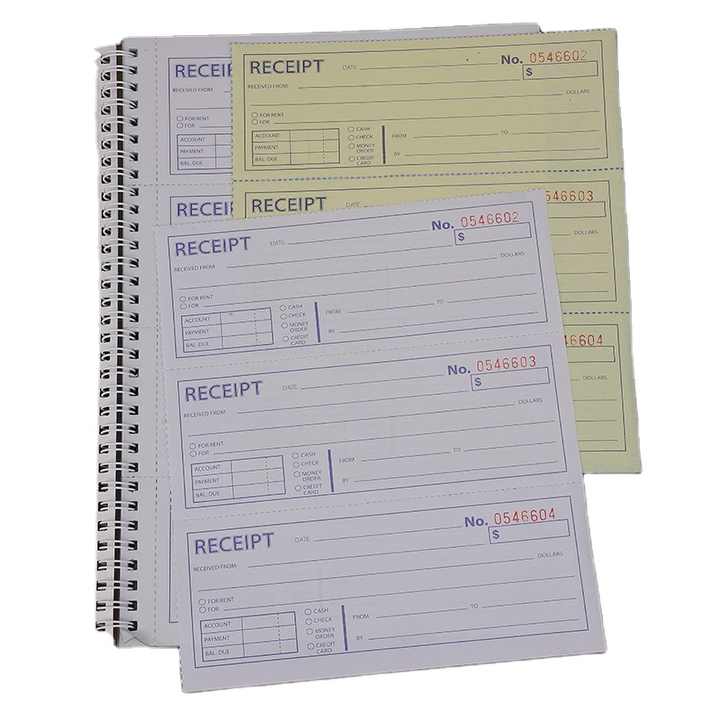 RECEIPT DATE No. 0546602
$
RECEIVED FROM
DOLLARS
FOR RENT
FOR
ACCOUNT CASH
PAYMENT CHECK FROM TO
BAL. DUE MONEY ORDER BY
CREDIT CARD
RECEIPT DATE 0546603
DOLLARS
46604
DOLLARS
RECEIPT
RECEIVED FROM
FOR RENT
FOR
ACCOUNT
PAYMENT
BAL. DUE
RECEIP
RECEIPT DATE No. 0546602
$
RECEIVED FROM
DOLLARS
FOR RENT
FOR
ACCOUNT CASH
PAYMENT CHECK FROM TO
BAL. DUE MONEY ORDER BY
CREDIT CARD
RECEIPT DATE No. 0546603
$
RECEIVED FROM
DOLLARS
FOR RENT
FOR
ACCOUNT CASH
PAYMENT CHECK FROM TO
BAL. DUE MONEY ORDER BY
CREDIT CARD
RECEIPT DATE No. 0546604
$
RECEIVED FROM
DOLLARS
FOR RENT
FOR
ACCOUNT CASH
PAYMENT CHECK FROM TO
BAL. DUE MONEY ORDER BY
CREDIT CARD